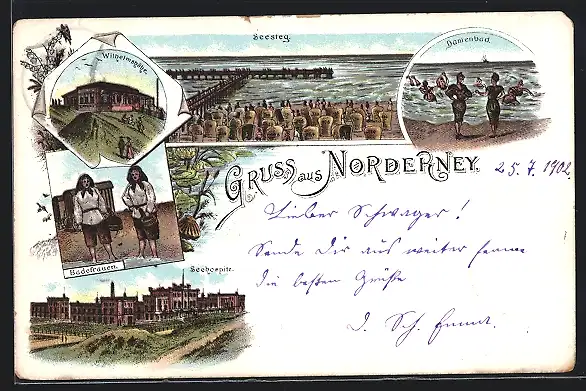 Seesteg.
Damenbad.
Wilhelmshöhe.
GRUSS aus NORDERNEY.
25.7.1902.
Lieber Schwager!
Sende Dir aus weiter Ferne
die besten Grüße
D. Sch.
Badefrauen.
Seehospitz.